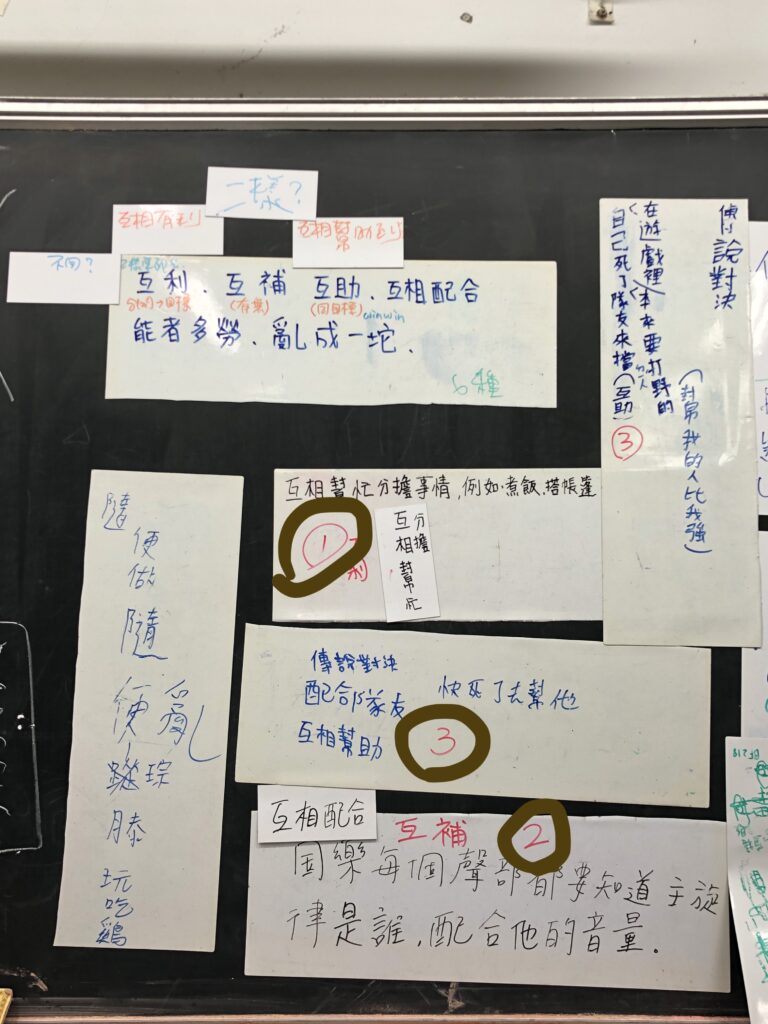 一樣？
互相有利
互相幫助互利
不同？
互利、互補 互助、互相配合
(有無)
(同目標)
winwin
能者多勞、亂成一坨.
6種
傳說對決
(對幫我的人比我強)
在遊戲裡(本來要打野的
自己死了隊友來擋(互助)
③
互相幫忙分擔事情,例如:煮飯,搭帳篷
①
利
分擔
互相幫忙
傳說對決
配合隊友 快死了去幫他
互相幫助
3
互相配合
互補
2
國樂每個聲部都要知道主旋
律是誰,配合他的音量.
隨便做
隨便亂
玩吃雞